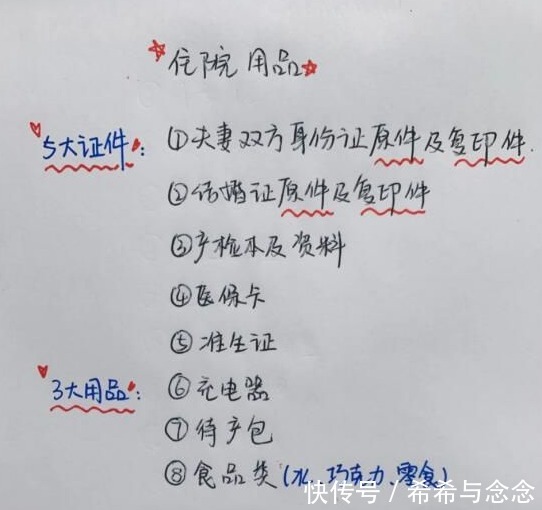 住院用品
5大证件：①夫妻双方身份证原件及复印件.
②结婚证原件及复印件
③产检本及资料
④医保卡
⑤准生证
3大用品：⑥充电器
⑦待产包
⑧食品类（水、巧克力、零食）
快传号／希希与念念